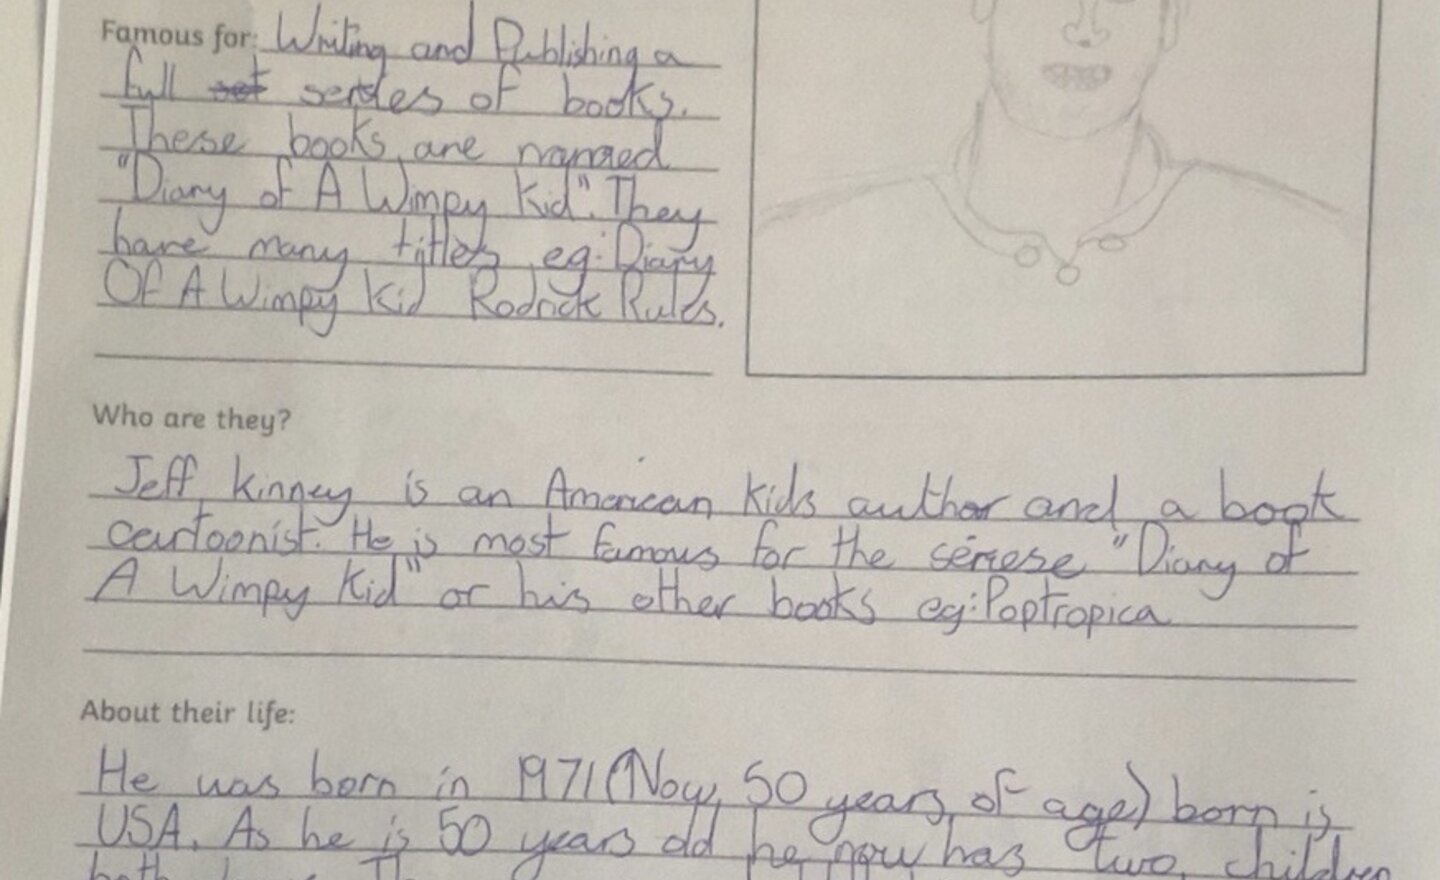 Famous for: Writing and Publishing a
full set serdes of books.
These books are named
"Diary of A Wimpy Kid". They
have many titles eg: Diary
Of A Wimpy Kid Rodrick Rules.
Who are they?
Jeff Kinney is an American Kids author and a book
cartoonist. He is most famous for the seriese "Diary of
A Wimpy Kid" or his other books eg: Poptropica
About their life:
He was born in 1971 (Now, 50 years of age) born is
USA. As he is 50 years old he now has two children
both